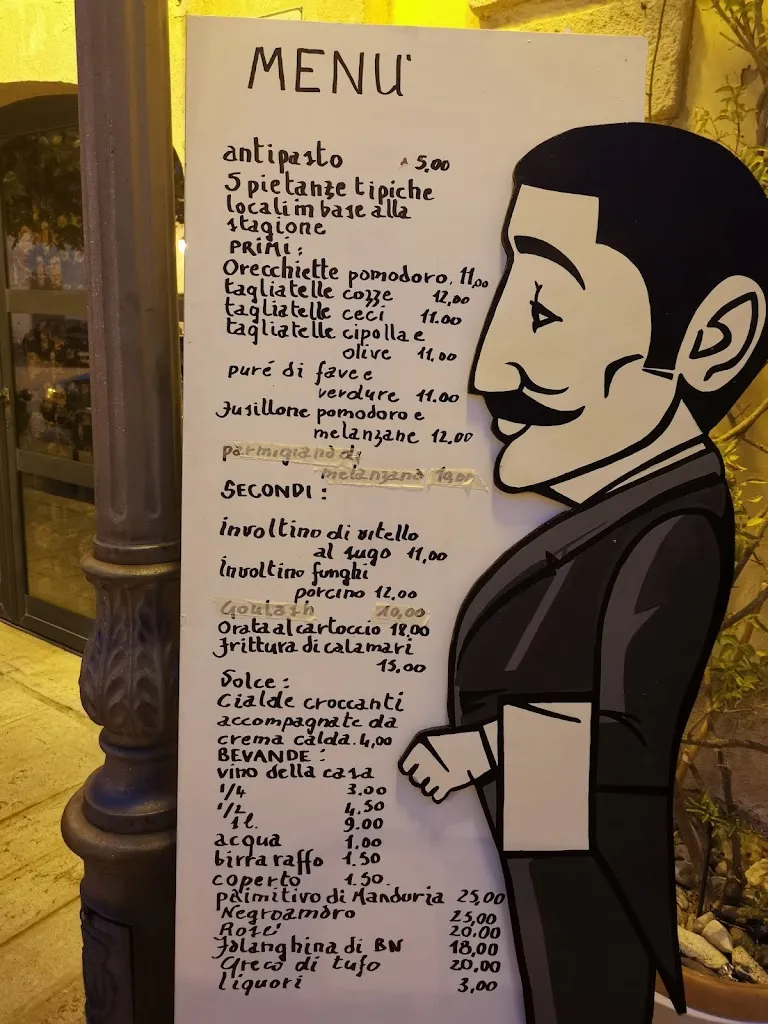 MENU'
antipasto 5,00
5 pietanze tipiche
locali in base alla
stagione
PRIMI:
Orecchiette pomodoro. 11,00
tagliatelle cozze 12,00
tagliatelle ceci 11.00
tagliatelle cipolla e
olive 11,00
puré di fave e
verdure 11.00
fusillone pomodoro e
melanzane 12.00
parmigiana di
melanzana 10,00
SECONDI:
involtino di vitello
al sugo 11,00
involtino funghi
porcino 12.00
Goulash 10,00
Orata al cartoccio 18,00
frittura di calamari
15.00
Dolce:
cialde croccanti
accompagnate da
crema calda. 4,00
BEVANDE:
vino della casa
1/4 3.00
1/2 4.50
1 l. 9.00
acqua 1.00
birra raffo 1.50
coperto 1.50.
primitivo di Manduria 25,00
Negroamaro 25,00
Rosé 20.00
Falanghina di BN 18,00
Greco di tufo 20,00
liquori 3,00